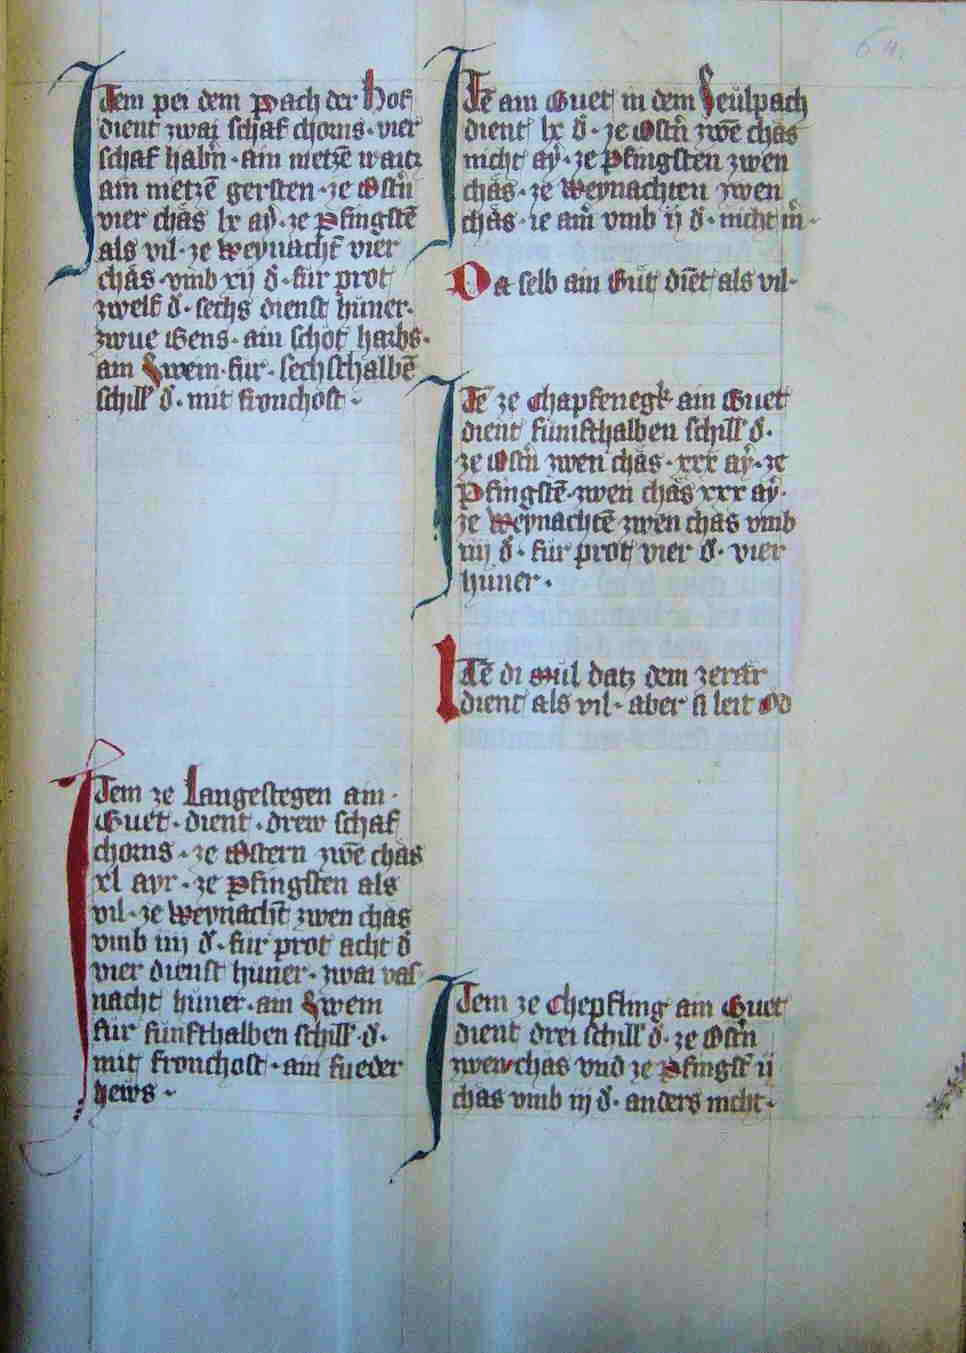 Item pei dem Pach der Hof
dient zwai schaf chorns · vier
schaf habrn̄ · ain metzē waitz
ain metzē gersten · ze Ostn̄
vier chäs lx aẏ · ze Pfingstē
als vil · ze weynacht vier
chäs · vmb xij d · für prot
zwelf d · sechs dienst hüner ·
zwue Gens · ain schot harbs ·
ain Swein · für · sechsthalbē
schill d · mit fronchost ·
Item ze Langestegen ain ·
Guet · dient · drew schaf
chorns · ze Ostern zwē chäs
xl ayr · ze Pfingsten als
vil · ze weynacht zwen chäs
vmb iiij d · für prot acht d
vier dienst hüner · zwai vas
nacht hüner · ain Swein
für fünfthalben schill · d ·
mit fronchost · ain fueder
hews ·
64
Itē ain Guet in dem Seulpach
dient lx d · ze Ostn̄ zwē chäs
nicht aẏ · ze Pfingsten zwen
chäs · ze weynachten zwen
chäs · ie ain vmb ij d · nicht m̄ ·
Da selb ain Gut diēt als vil ·
Itē ze Chapfenegk ain Guet
dient fünfthalben schill d ·
ze Ostn̄ zwen chäs · xxx aẏ · ze
Pfingstē · zwen chäs xxx aẏ ·
ze weynachtē zwen chäs vmb
iiij d · für prot vier d · vier
hüner ·
Itē di Mül datz dem zerer
dient als vil · aber si leit Od
Item ze Chepfling ain Guet
dient drei schill d · ze Ostn̄
zwen chäs vnd ze Pfingst ij
chäs vmb iij d · anders nicht ·